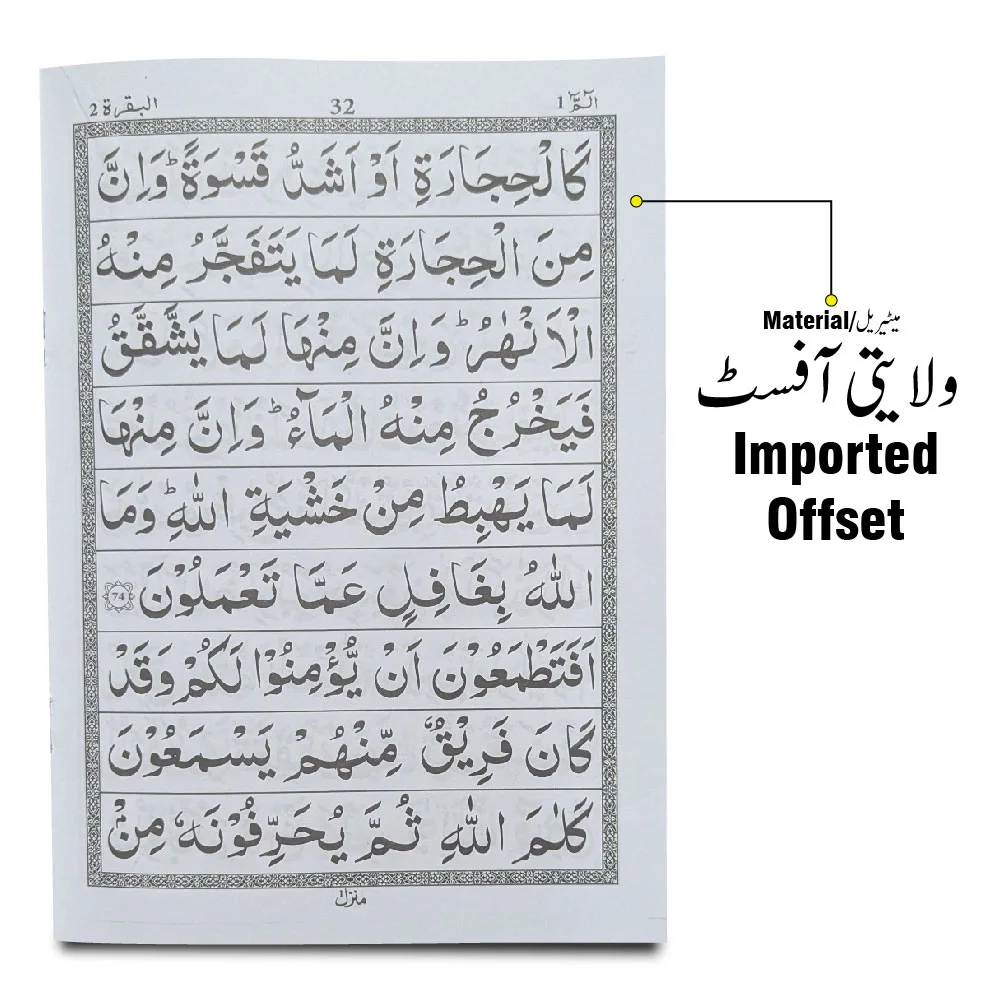 الٓمّٓ 1 32 البقرة 2
كَالْحِجَارَةِ اَوْ اَشَدُّ قَسْوَةً ؕ وَاِنَّ
مِنَ الْحِجَارَةِ لَمَا يَتَفَجَّرُ مِنْهُ
الْاَنْهٰرُ ؕ وَاِنَّ مِنْهَا لَمَا يَشَّقَّقُ
فَيَخْرُجُ مِنْهُ الْمَآءُ ؕ وَاِنَّ مِنْهَا
لَمَا يَهْبِطُ مِنْ خَشْيَةِ اللّٰهِ ؕ وَمَا
اللّٰهُ بِغَافِلٍ عَمَّا تَعْمَلُوْنَ 74
اَفَتَطْمَعُوْنَ اَنْ يُّؤْمِنُوْا لَكُمْ وَقَدْ
كَانَ فَرِيْقٌ مِّنْهُمْ يَسْمَعُوْنَ
كَلٰمَ اللّٰهِ ثُمَّ يُحَرِّفُوْنَهٗ مِنْۢ
منزل ۱
Material/میٹیریل
ولایتی آفسٹ
Imported
Offset